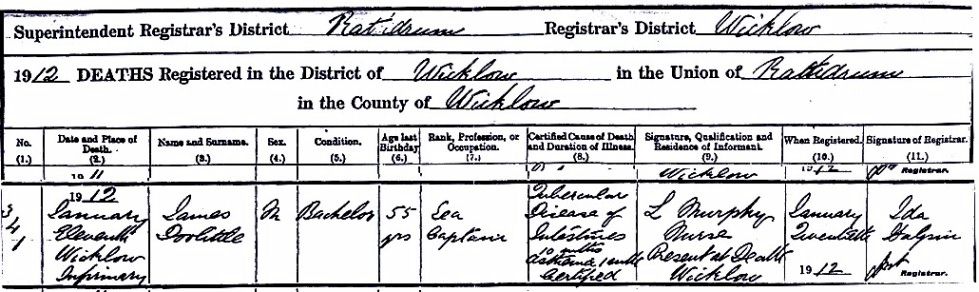 Superintendent Registrar's District Rathdrum Registrar's District Wicklow
1912 DEATHS Registered in the District of Wicklow in the Union of Rathdrum
in the County of Wicklow
No. Date and Place of Death. Name and Surname. Sex. Condition. Age last Birthday Rank, Profession, or Occupation. Certified Cause of Death and Duration of Illness. Signature, Qualification and Residence of Informant. When Registered. Signature of Registrar.
(1.) (2.) (3.) (4.) (5.) (6.) (7.) (8.) (9.) (10.) (11.)
Wicklow 1912 Registrar.
1912 Tubercular
341 January James M Bachelor 55 Sea Disease of L Murphy January Ida
Eleventh Doolittle yrs Captain Intestines Nurse Twentieth
Wicklow 10 mths Present at Death
Infirmary Certified Wicklow 1912 Registrar.